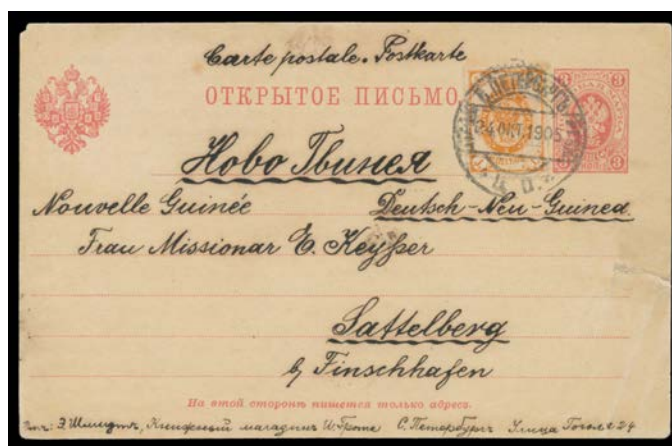 Carte postale. Postkarte
ОТКРЫТОЕ ПИСЬМО.
3 3
С.ПЕТЕРБУРГЪ
24 ОКТ. 1905
3
Ново Гвинея
Nouvelle Guinée Deutsch-Neu-Guinea
Frau Missionar E. Keyßer
Sattelberg
b/ Finschhafen
На этой сторонѣ пишется только адресъ.
Э. Шмидтъ, Книжный магазинъ С. Петербургъ Улица Гоголя 24